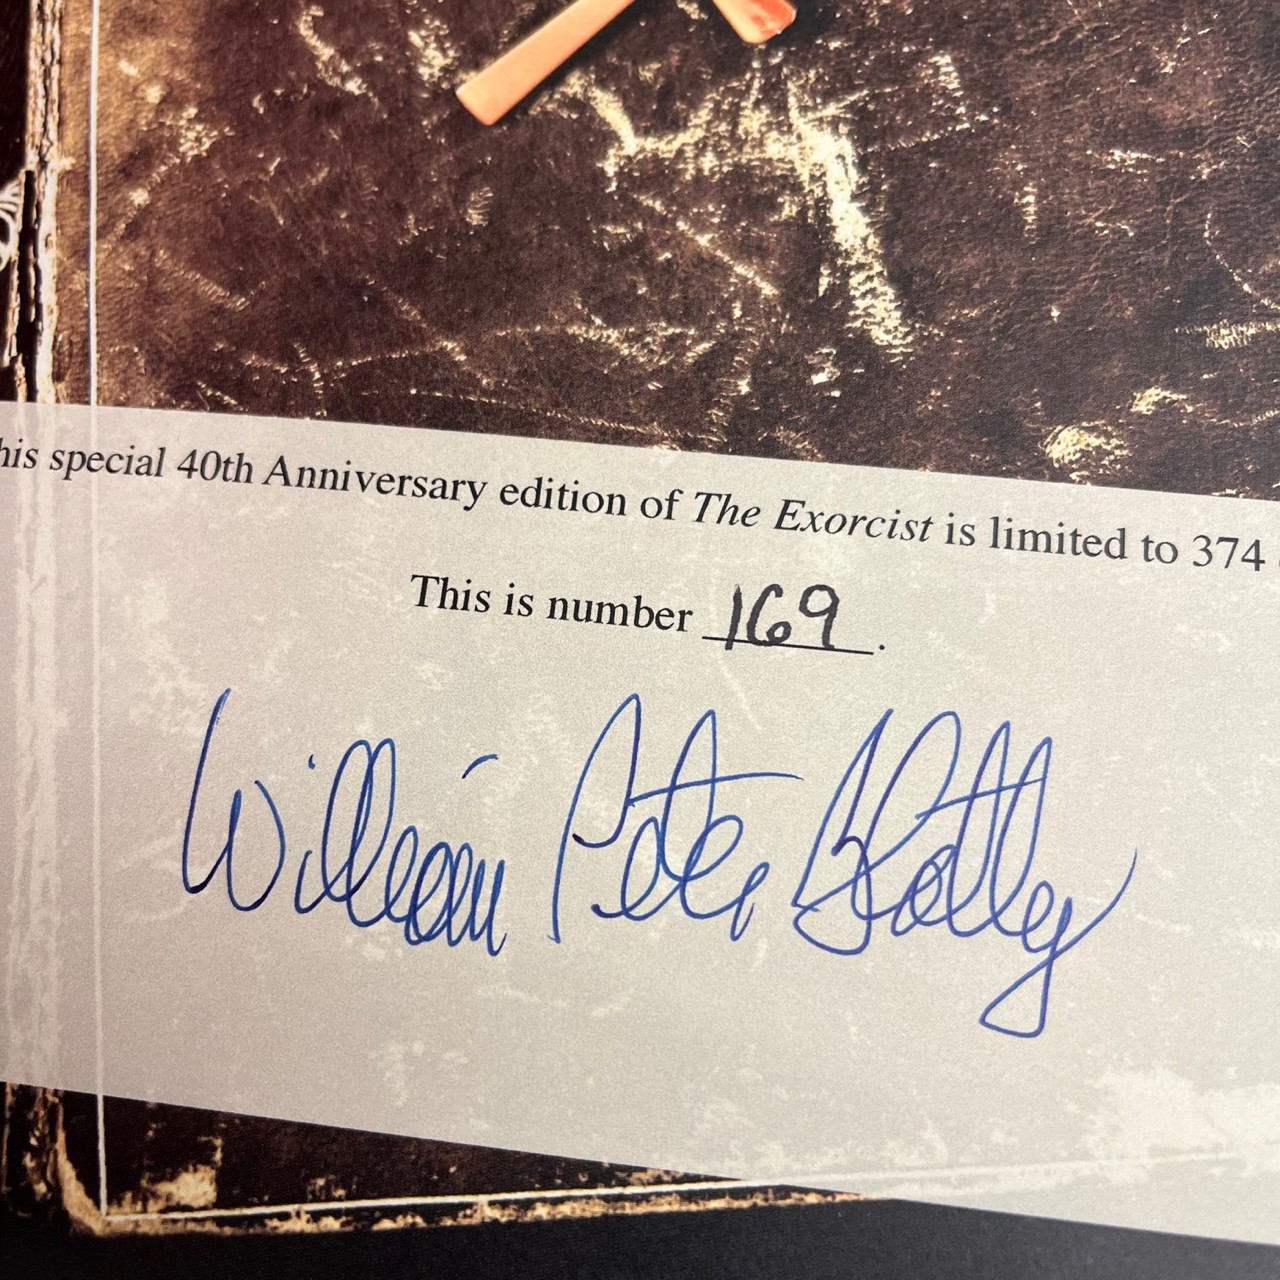 his special 40th Anniversary edition of The Exorcist is limited to 374
This is number 169.
William Peter Blatty